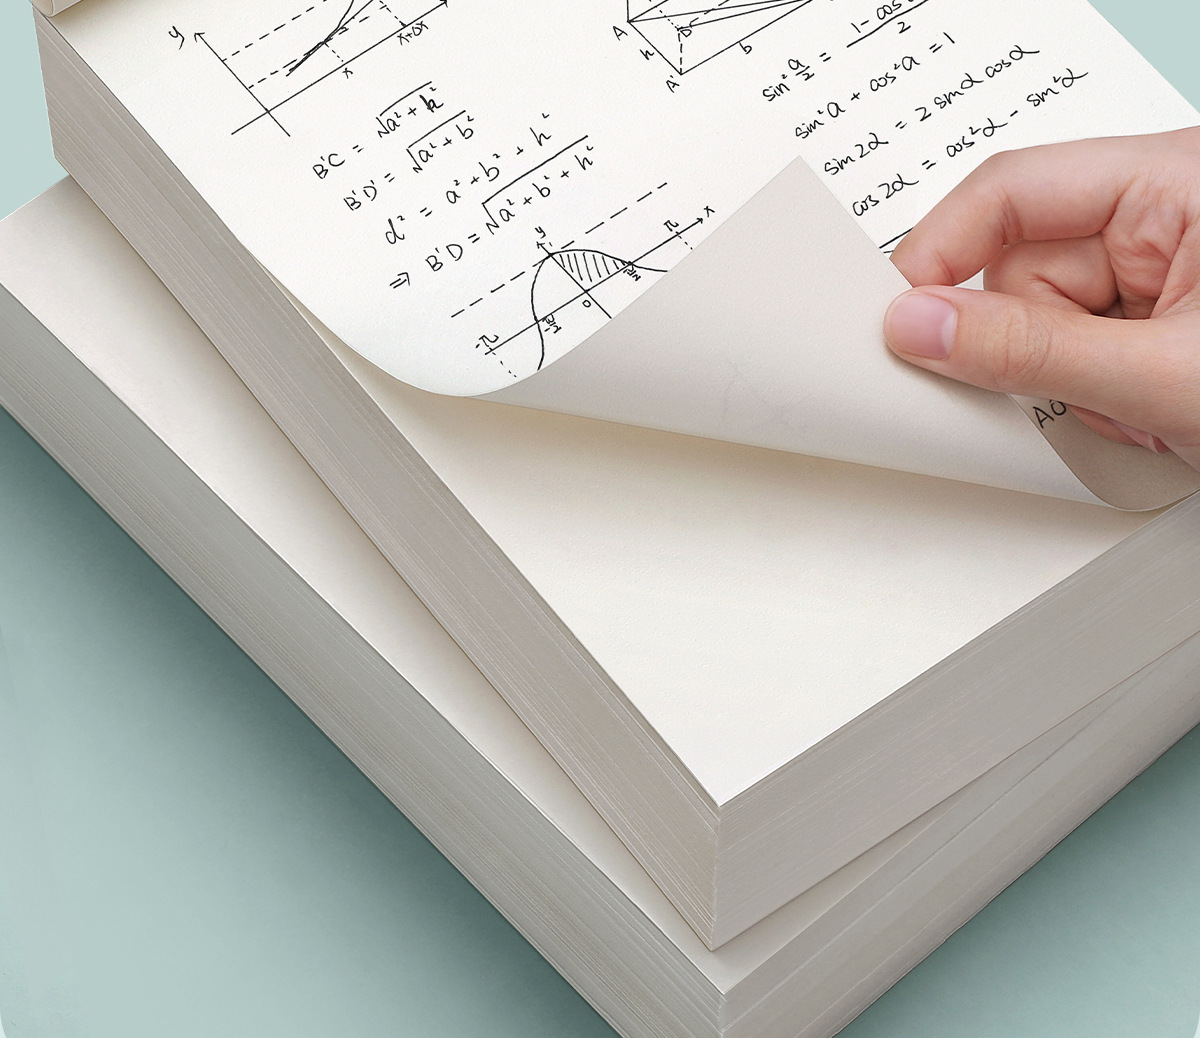 y
x
x+Δx
B'C = √a²+h²
B'D' = √a²+b²
d² = a²+b²+h²
⇒ B'D = √a²+b²+h²
y
x
π
π/2
0
-π/2
-π
A
D
h
b
A'
sin² a/2 = 1-cos
2
sin²a + cos²a = 1
sin2α = 2 sinα cosα
cos2α = cos²α - sin²α